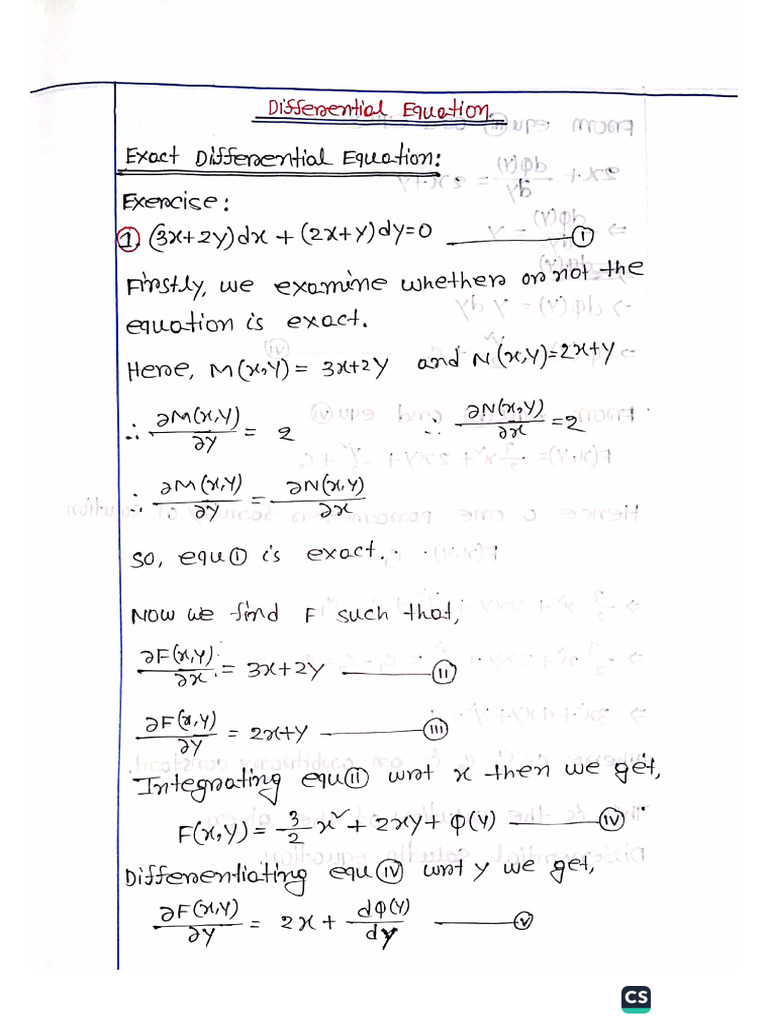 Differential Equation
Exact Differential Equation:
Exercise:
1. (3x+2y)dx + (2x+y)dy=0 ——— (i)
Firstly, we examine whether or not the
equation is exact.
Here, M(x,y) = 3x+2y and N(x,y)=2x+y
∴ ∂M(x,y)/∂y = 2 ∴ ∂N(x,y)/∂x = 2
∴ ∂M(x,y)/∂y = ∂N(x,y)/∂x
So, equ (i) is exact.
Now we find F such that,
∂F(x,y)/∂x = 3x+2y ——— (ii)
∂F(x,y)/∂y = 2x+y ——— (iii)
Integrating equ (ii) wrt x then we get,
F(x,y) = 3/2 x² + 2xy + φ(y) ——— (iv)
Differentiating equ (iv) wrt y we get,
∂F(x,y)/∂y = 2x + dφ(y)/dy ——— (v)
CS